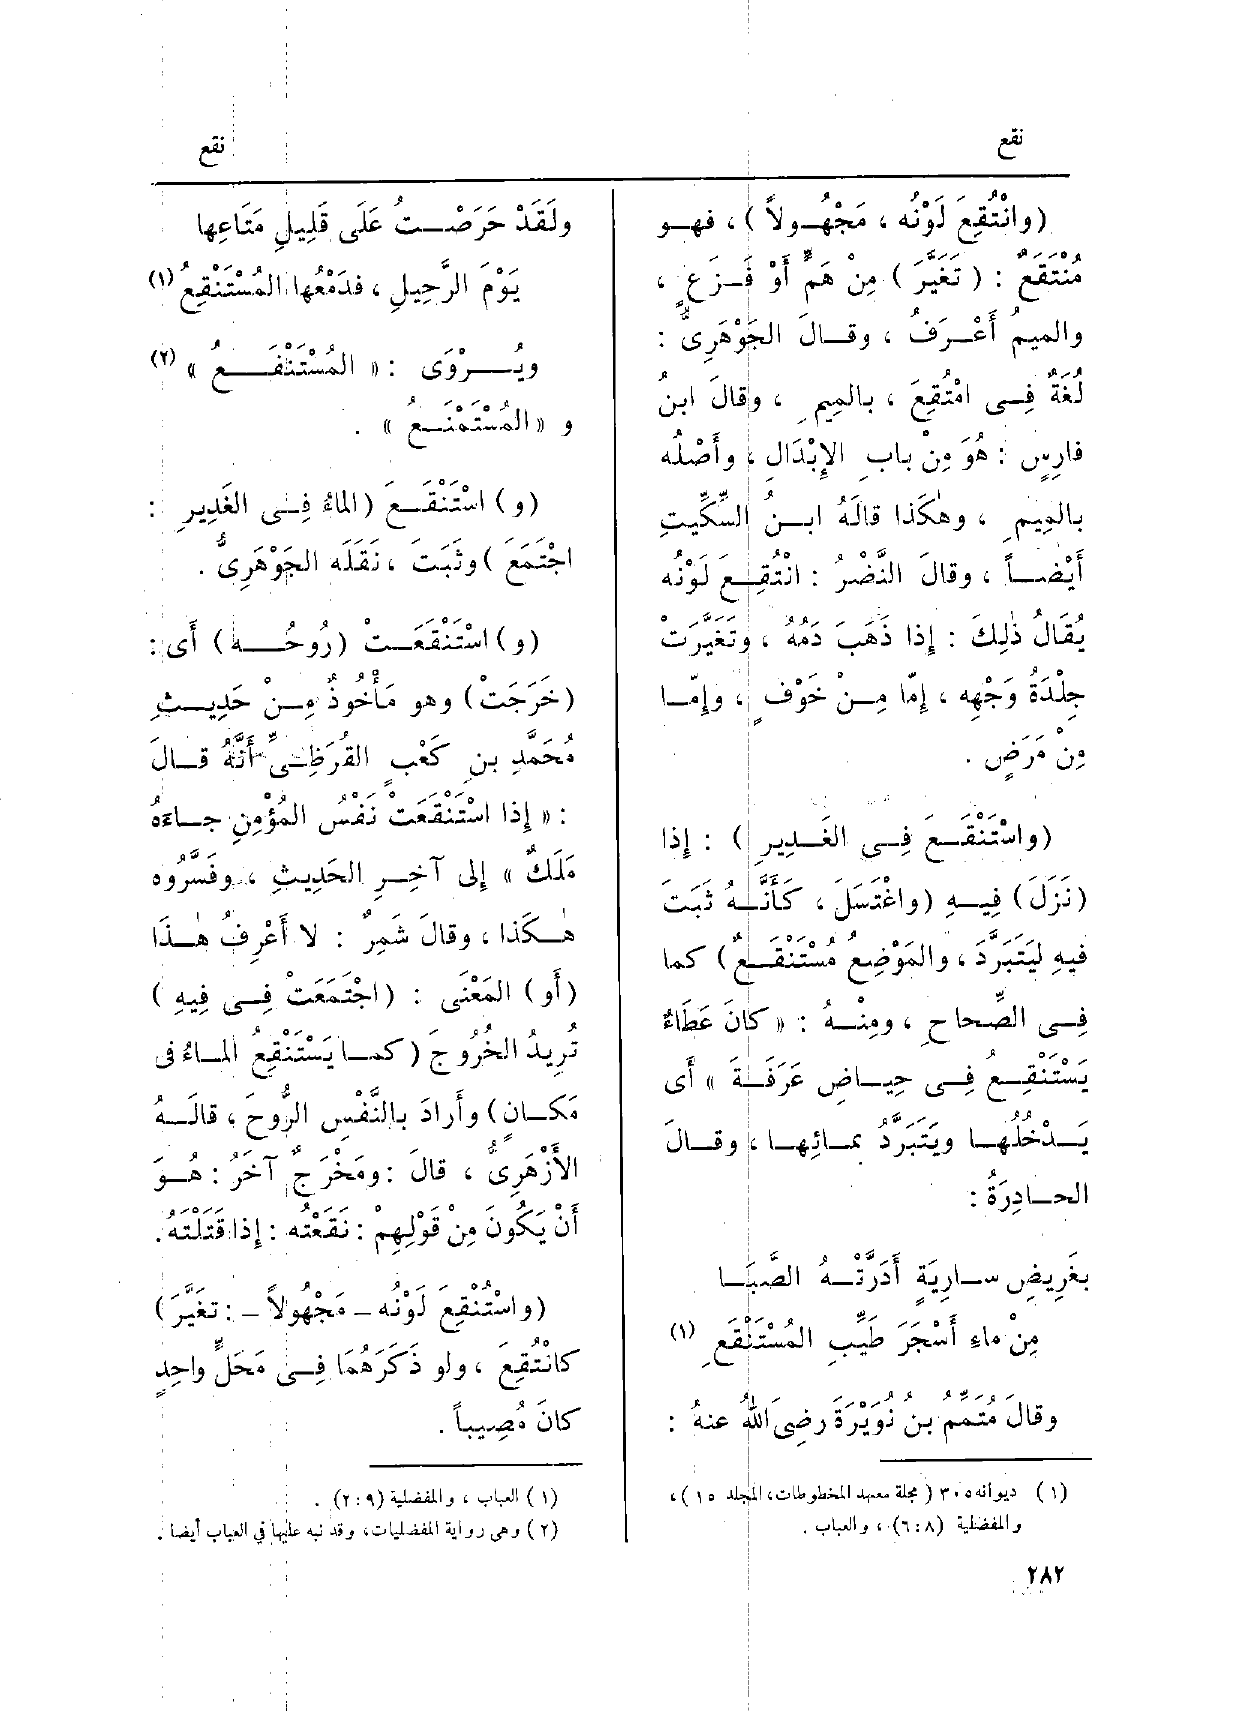 نقع
نقع
(وانْتُقِعَ لَوْنُه ، مَجْهُولاً) ، فهو
مُنْتَقَعٌ : (تَغَيَّرَ) مِن هَمٍّ أَوْ فَزَعٍ ،
والمِيمُ أَعْرَفُ ، وقالَ الجَوْهَرِىُّ :
لُغَةٌ فِى امْتُقِعَ ، بالمِيمِ ، وقالَ ابنُ
فارِسٍ : هُوَ مِنْ بابِ الإِبْدَالِ ، وأَصْلُه
بالمِيمِ ، وهٰكَذا قالَهُ ابنُ السِّكِّيتِ
أَيْضاً ، وقالَ النَّضْرُ : انْتُقِعَ لَوْنُه
يُقَالُ ذٰلِكَ : إِذا ذَهَبَ دَمُهُ ، وتَغَيَّرَتْ
جِلْدَةُ وَجْهِه ، إِمّا مِنْ خَوْفٍ ، وإِمّا
مِنْ مَرَضٍ .
(واسْتَنْقَعَ فِى الغَدِيرِ) : إِذا
(نَزَلَ) فِيهِ (واغْتَسَلَ ، كَأَنَّهُ ثَبَتَ
فيهِ لِيَتَبَرَّدَ ، والمَوْضِعُ مُسْتَنْقَعٌ) كما
فِى الصِّحاحِ ، ومِنْهُ : « كانَ عَطَاءٌ
يَسْتَنْقِعُ فِى حِياضِ عَرَفَةَ » أَى
يَدْخُلُها ويَتَبَرَّدُ بمائِها ، وقالَ
الحادِرَةُ :
بغَرِيضِ سارِيَةٍ أَدَرَّتْهُ الصَّبَا
مِنْ ماءِ أَسْجَرَ طَيِّبِ المُسْتَنْقَعِ (١)
وقالَ مُتَمِّمُ بنُ نُوَيْرَةَ رضِىَ اللهُ عنهُ :
(١) ديوانه ٣٠٥ (مجلة معهد المخطوطات، المجلد ١٥)،
والمفضلية (٨ : ٦) ، والعباب .
٢٨٢
ولَقَدْ حَرَصْتُ عَلَى قَلِيلِ مَتَاعِها
يَوْمَ الرَّحِيلِ ، فدَمْعُها المُسْتَنْقِعُ (١)
ويُرْوَى : « المُسْتَنْفَعُ » (٢)
و «المُسْتَمْنَعُ » .
(و) اسْتَنْقَعَ (الماءُ فِى الغَدِيرِ :
اجْتَمَعَ) وثَبَتَ ، نَقَلَه الجَوْهَرِىُّ .
(و) اسْتَنْقَعَتْ (رُوحُه) أَى :
(خَرَجَتْ) وهو مَأْخُوذٌ مِنْ حَدِيثِ
مُحَمَّدِ بنِ كَعْبٍ القُرَظِىِّ أَنَّهُ قالَ
: « إِذا اسْتَنْقَعَتْ نَفْسُ المُؤْمِنِ جاءَهُ
مَلَكٌ » إِلى آخِرِ الحَدِيثِ ، وفَسَّرُوه
هٰكَذا ، وقالَ شَمِرٌ : لا أَعْرِفُ هٰذا
(أَو) المَعْنَى : (اجْتَمَعَتْ فِى فِيهِ)
تُرِيدُ الخُرُوجَ (كما يَسْتَنْقِعُ الماءُ فى
مَكانٍ) وأَرادَ بالنَّفْسِ الرُّوحَ ، قالَهُ
الأَزْهَرِىُّ ، قالَ : ومَخْرَجٌ آخَرُ : هُوَ
أَنْ يَكُونَ مِنْ قَوْلِهِمْ : نَقَعْتُه : إِذا قَتَلْتَهُ .
(واسْتُنْقِعَ لَوْنُه - مَجْهُولاً - : تغَيَّرَ)
كانْتُقِعَ ، ولو ذَكَرَهُمَا فِى مَحَلٍّ واحِدٍ
كانَ مُصِيباً .
(١) العباب ، والمفضلية (٩ : ٢) .
(٢) وهى رواية المفضليات، وقد نبه عليها فى العباب أيضا .